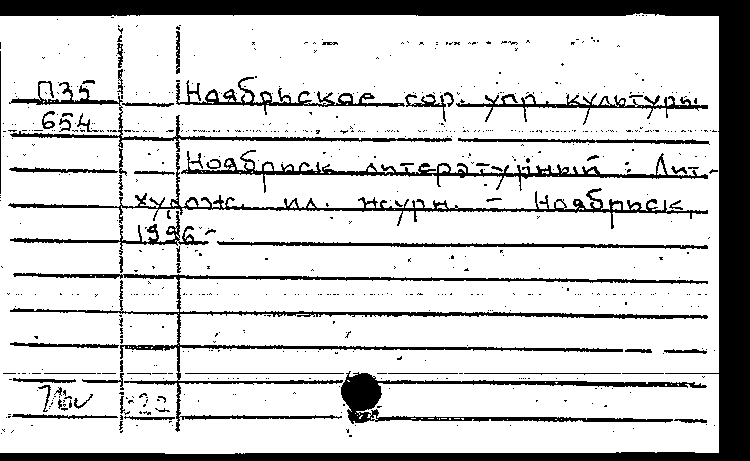 П35 Ноябрьское гор. упр. культуры
654
Ноябрьск литературный : Лит.-
худож. ил. журн. – Ноябрьск,
1996-